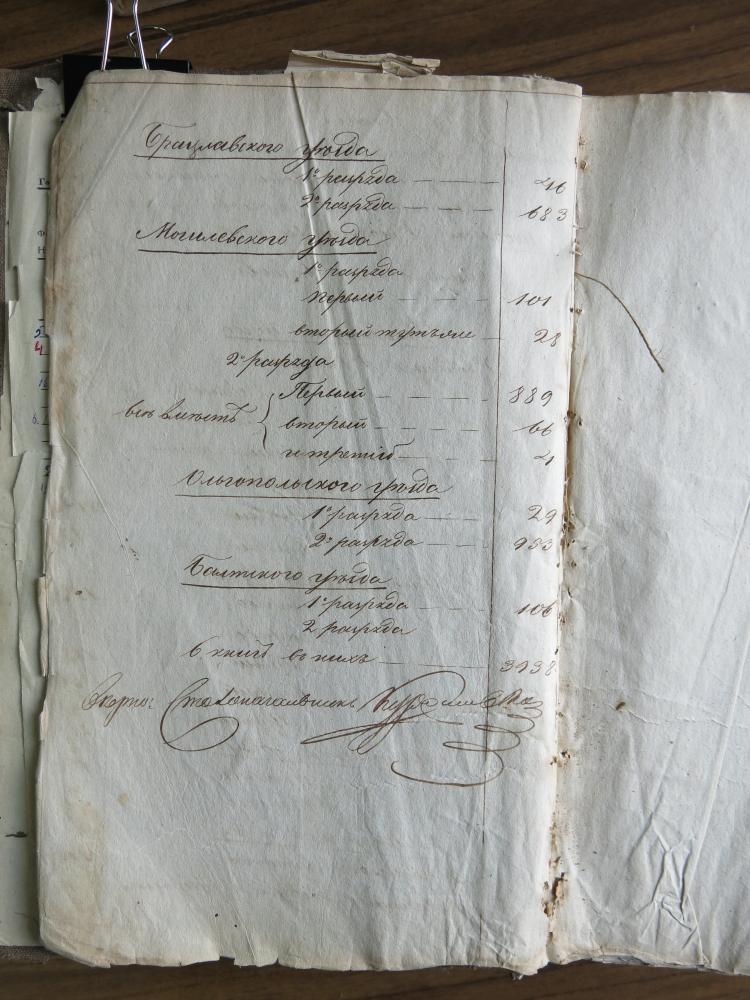 Брацлавскаго уѣзда
1го разряда — — — 46
2го разряда — — — 683
Могилевскаго уѣзда
1го разряда
первый — — — 101
вторый — 28
2го разряда
всѣ вмѣстѣ { Первый — — — 889
вторый — — — 66
и третій — — —
Ольгопольскаго уѣзда
1го разряда — — — 29
2го разряда — — — 933
Балтскаго уѣзда
1го разряда — — — 106
2 разряда
6 книгъ въ нихъ — — — 3938
Вѣрно: Столоначальникъ